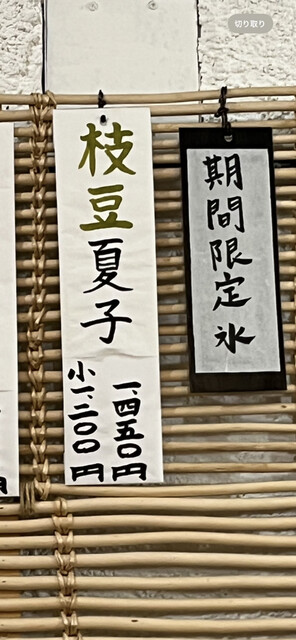 切り取り
期間限定氷
枝豆夏子
一、四五〇円
小一、二〇〇円